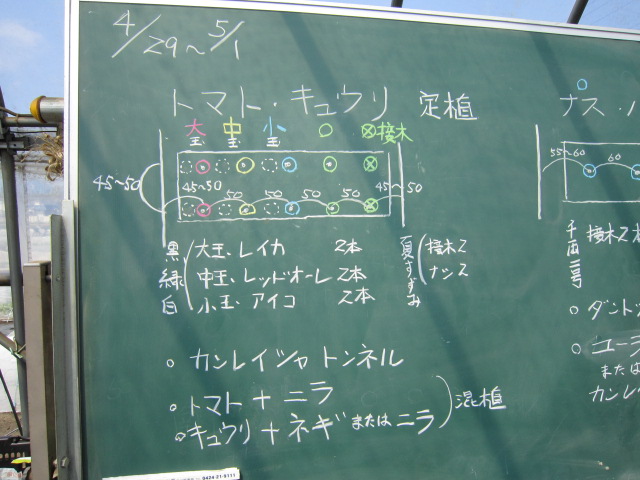 4/29～5/1
トマト・キュウリ 定植
ナス・
大玉 中玉 小玉 ○ ⊗接木
45～50
45～50 50 50 50 50 45 50
55 60 60
黒 大玉、レイカ 2本
緑 中玉、レッドオーレ 2本
白 小玉、アイコ 2本
夏すずみ 接木2
ナシ2
千両二号 接木2本
○ ダント
○ ユーラ
または
カンレイ
○ カンレイシャトンネル
○ トマト＋ニラ
○ キュウリ＋ネギまたはニラ
混植
0424-21-8111